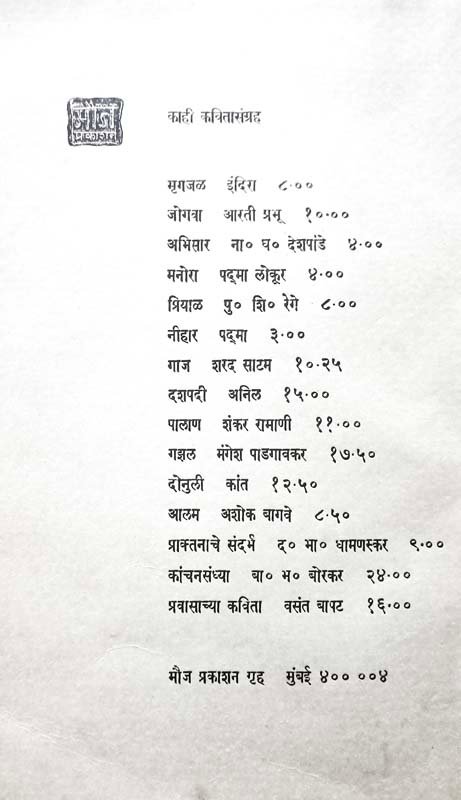 मौज
प्रकाशन
काही कवितासंग्रह
मृगजळ इंदिरा ८·००
जोगवा आरती प्रभू १०·००
अभिसार ना० घ० देशपांडे ४·००
मनोरा पद्मा लोकूर ४·००
प्रियाळ पु० शि० रेगे ८·००
नीहार पद्मा ३·००
गाज शरद साटम १०·२५
दशपदी अनिल १५·००
पालाण शंकर रामाणी ११·००
गझल मंगेश पाडगावकर १७·५०
दोनुली कांत १२·५०
आलम अशोक बागवे ८·५०
प्राक्तनाचे संदर्भ द० भा० धामणस्कर ९·००
कांचनसंध्या बा० भ० बोरकर २४·००
प्रवासाच्या कविता वसंत बापट १६·००
मौज प्रकाशन गृह मुंबई ४०० ००४